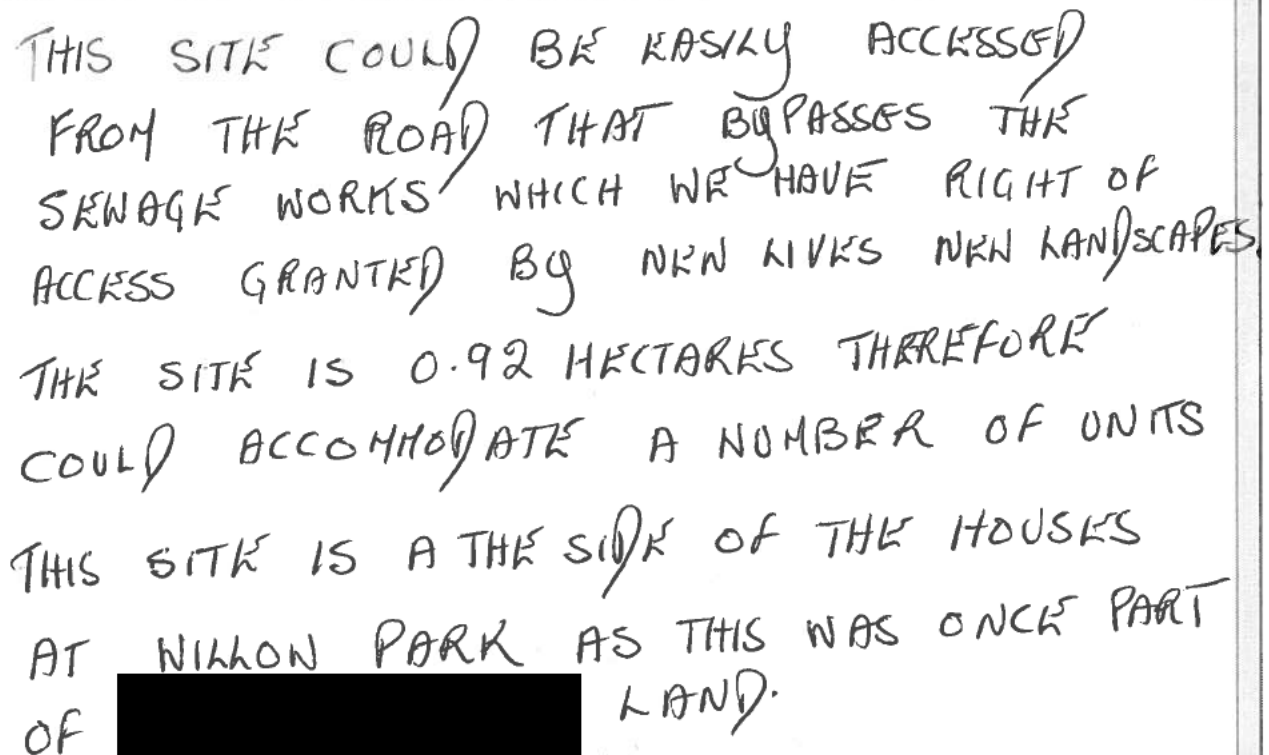 THIS SITE COULD BE EASILY ACCESSED
FROM THE ROAD THAT BYPASSES THE
SEWAGE WORKS WHICH WE HAVE RIGHT OF
ACCESS GRANTED BY NEW LIVES NEW LANDSCAPES.
THE SITE IS 0.92 HECTARES THEREFORE
COULD ACCOMMODATE A NUMBER OF UNITS
THIS SITE IS A THE SIDE OF THE HOUSES
AT WILLOW PARK AS THIS WAS ONCE PART
OF LAND.